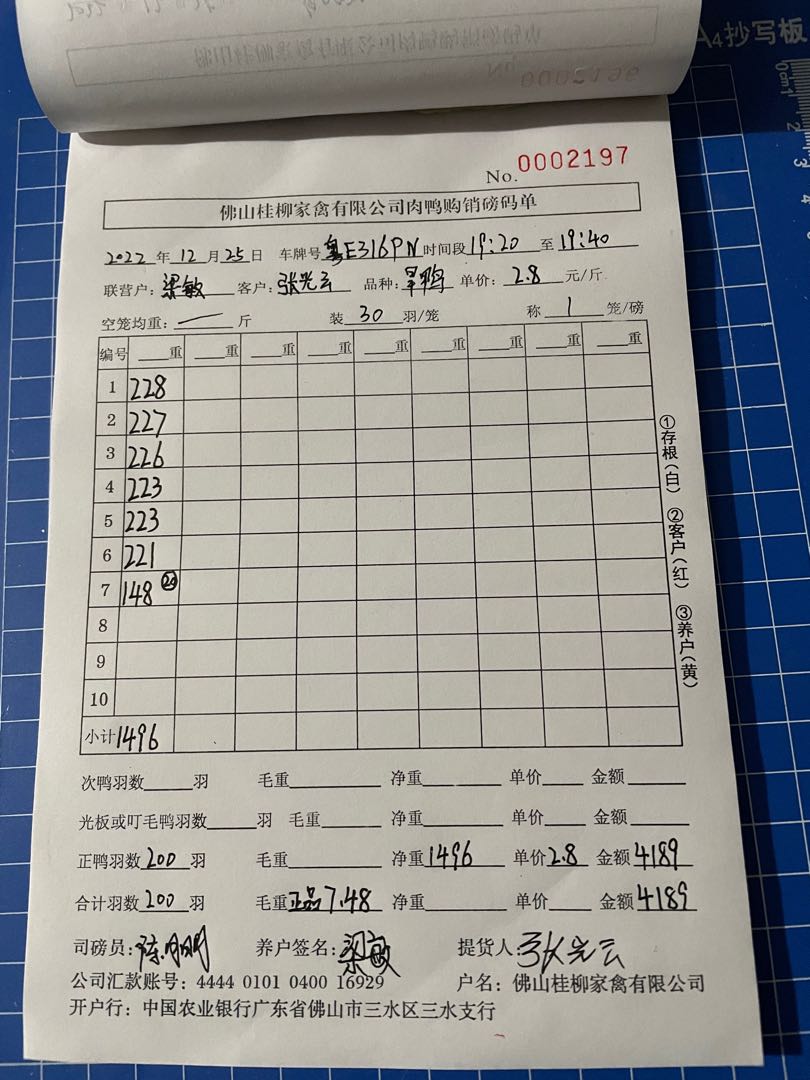 A4抄写板
No. 0002197
佛山桂柳家禽有限公司肉鸭购销磅码单
2022 年 12 月 25 日 车牌号 粤E316PN 时间段 19:20 至 19:40
联营户: 梁敏 客户: 张光云 品种: 旱鸭 单价: 2.8 元/斤
空笼均重: — 斤 装 30 羽/笼 称 1 笼/磅
编号 重 重 重 重 重 重 重 重 重
1 228
2 227
3 226
4 223
5 223
6 221
7 148 20
8
9
10
小计 1496
①存根(白) ②客户(红) ③养户(黄)
次鸭羽数 羽 毛重 净重 单价 金额
光板或叮毛鸭羽数 羽 毛重 净重 单价 金额
正鸭羽数 200 羽 毛重 净重 1496 单价 2.8 金额 4189
合计羽数 200 羽 毛重 正品7.48 净重 单价 金额 4189
司磅员: 养户签名: 梁敏 提货人: 张光云
公司汇款账号: 4444 0101 0400 16929 户名: 佛山桂柳家禽有限公司
开户行: 中国农业银行广东省佛山市三水区三水支行